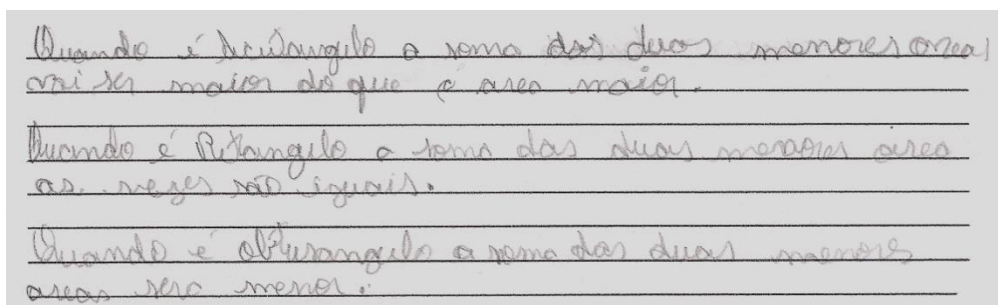 Quando é Acutangulo a soma das duas menores areas
vai ser maior do que a area maior.
Quando é Retangulo a soma das duas menores area
as vezes são iguais.
Quando é obtusangulo a soma das duas menores
areas sera menor.